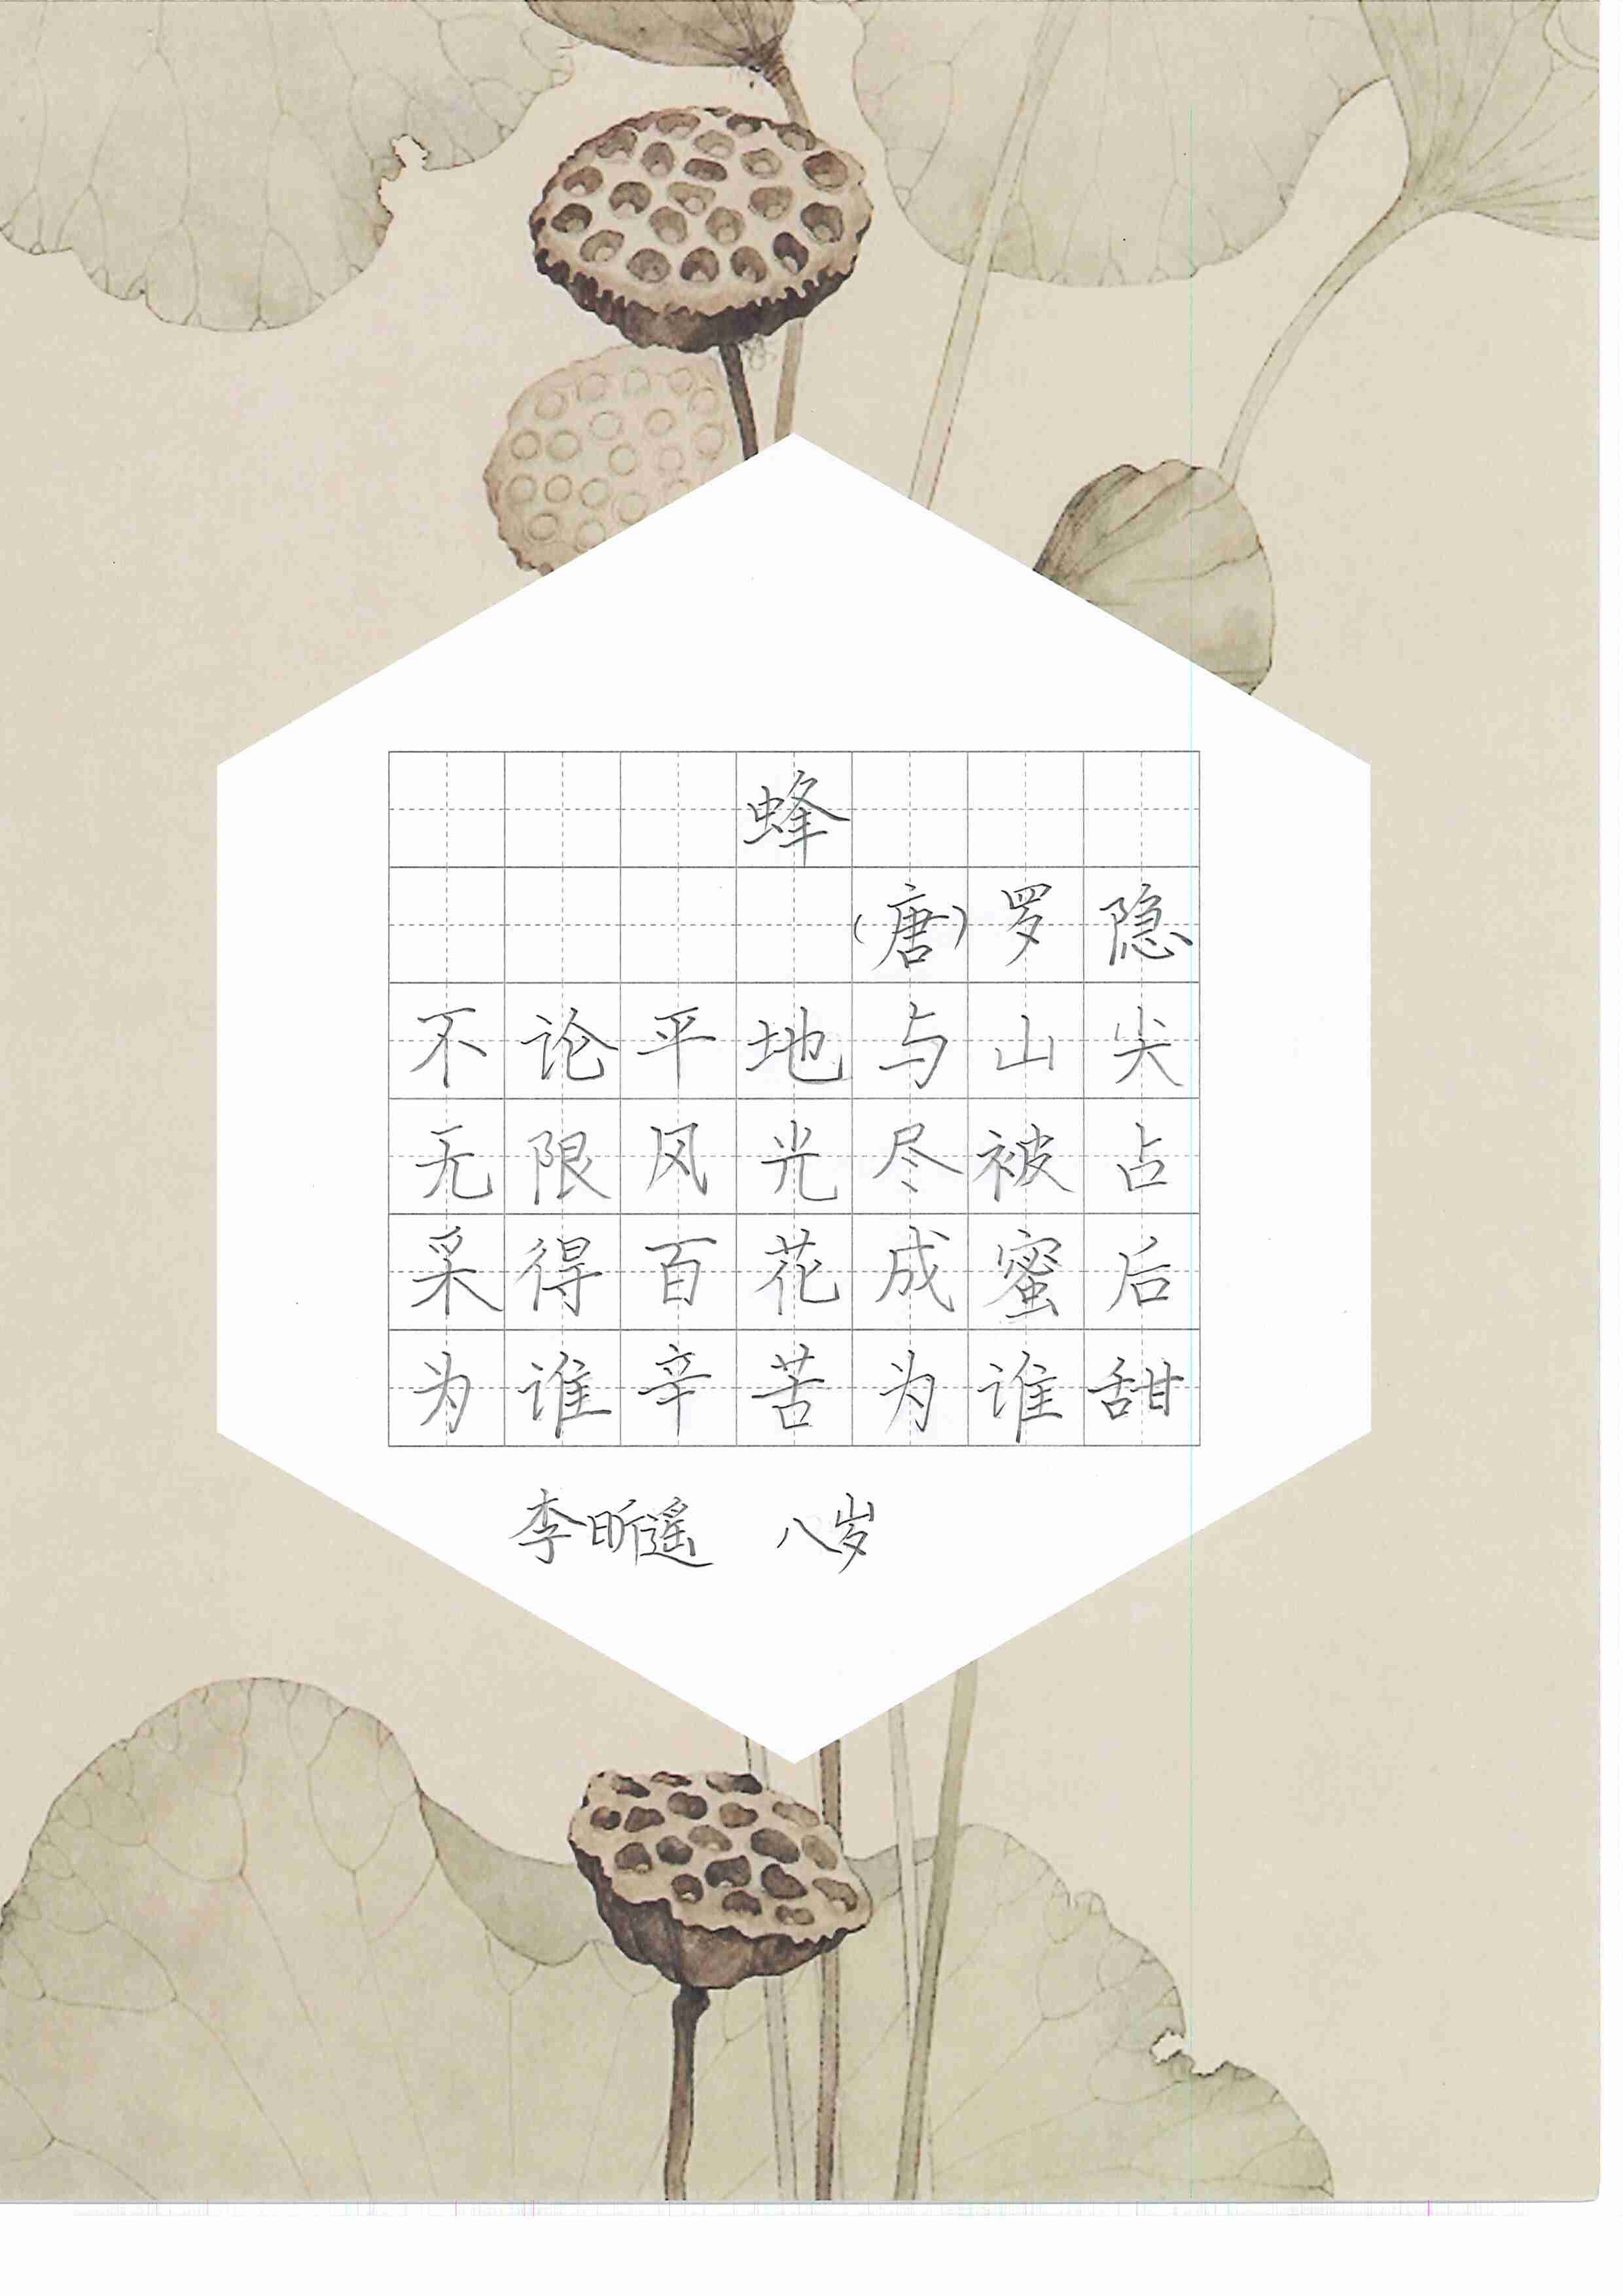 蜂
(唐)罗隐
不论平地与山尖
无限风光尽被占
采得百花成蜜后
为谁辛苦为谁甜
李昕遥 八岁